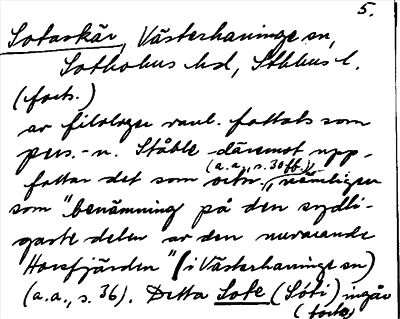 5.
Sotaskär, Västerhaninge sn,
Sotholms hd, Sthlms l.
(forts.)
av filologer vanl. fattats som
pers.-n. Ståhle däremot upp-
(a.a., s. 30 ff.)
fattar det som ortn., nämligen
som "benämning på den sydli-
gaste delen av den nuvarande
Horsfjärden" (i Västerhaninge sn)
(a.a., s. 36). Detta Sote (Soti) ingår
(forts)